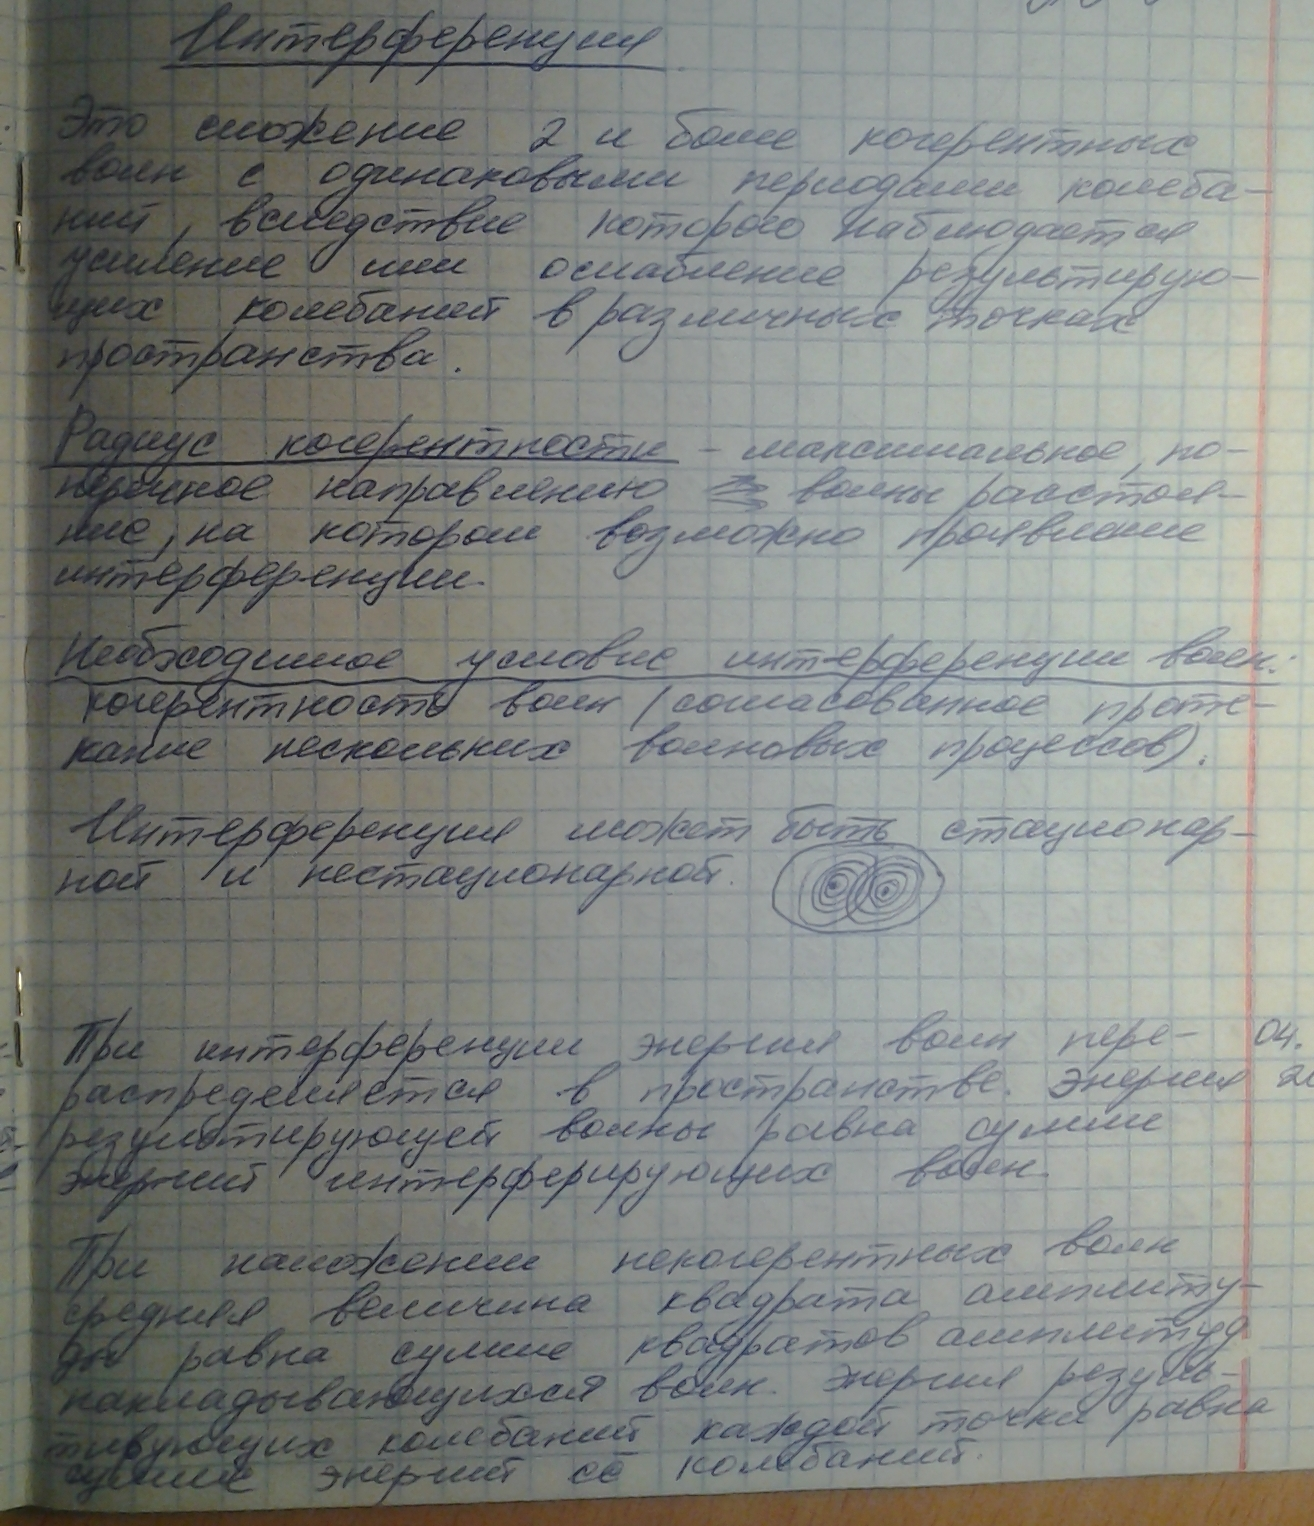 Интерференция
Это сложение 2 и более когерентных
волн с одинаковыми периодами колеба-
ний, вследствие которого наблюдается
усиление или ослабление результирую-
щих колебаний в различных точках
пространства.
Радиус когерентности - максимальное, по-
перечное направлению волны расстоя-
ние, на котором возможно проявление
интерференции.
Необходимое условие интерференции волн:
когерентность волн (согласованное проте-
кание нескольких волновых процессов).
Интерференция может быть стационар-
ной и нестационарной.
При интерференции энергия волн пере- 04.
распределяется в пространстве. Энергия
результирующей волны равна сумме
энергий интерферирующих волн.
При наложении некогерентных волн
средняя величина квадрата амплиту-
ды равна сумме квадратов амплитуд
накладывающихся волн. Энергия резуль-
тирующих колебаний каждой точки равна
сумме энергий её колебаний.